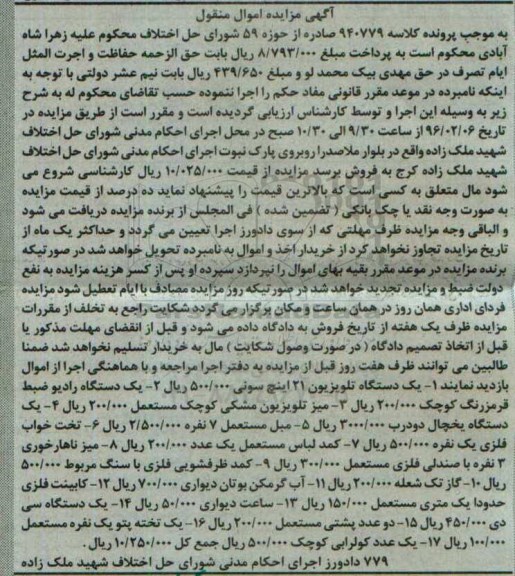 آگهی مزایده اموال منقول
به موجب پرونده کلاسه ۹۴۰۷۷۹ صادره از حوزه ۵۹ شورای حل اختلاف محکوم علیه زهرا شاه
آبادی محکوم است به پرداخت مبلغ ۸/۷۹۳/۰۰۰ ریال بابت حق الزحمه حفاظت و اجرت المثل
ایام تصرف در حق مهدی بیک محمد لو و مبلغ ۴۳۹/۶۵۰ ریال بابت نیم عشر دولتی با توجه به
اینکه نامبرده در موعد مقرر قانونی مفاد حکم را اجرا ننموده حسب تقاضای محکوم له به شرح
زیر به وسیله این اجرا و توسط کارشناس ارزیابی گردیده است و مقرر است از طریق مزایده در
تاریخ ۹۶/۰۲/۰۶ از ساعت ۹/۳۰ الی ۱۰/۳۰ صبح در محل اجرای احکام مدنی شورای حل اختلاف
شهید ملک زاده واقع در بلوار ملاصدرا روبروی پارک نبوت اجرای احکام مدنی شورای حل اختلاف
شهید ملک زاده کرج به فروش برسد مزایده از قیمت ۱۰/۰۲۵/۰۰۰ ریال کارشناسی شروع می
شود مال متعلق به کسی است که بالاترین قیمت را پیشنهاد نماید ده درصد از قیمت مزایده
به صورت وجه نقد یا چک بانکی ( تضمین شده ) فی المجلس از برنده مزایده دریافت می شود
و الباقی وجه مزایده ظرف مهلتی که از سوی دادورز اجرا تعیین می گردد و حداکثر یک ماه از
تاریخ مزایده تجاوز نخواهد کرد از خریدار اخذ و اموال به نامبرده تحویل خواهد شد در صورتیکه
برنده مزایده در موعد مقرر بقیه بهای اموال را نپردازد سپرده او پس از کسر هزینه مزایده به نفع
دولت ضبط و مزایده تجدید خواهد شد در صورتیکه روز مزایده مصادف با ایام تعطیل شود مزایده
فردای اداری همان روز در همان ساعت و مکان برگزار می گردد شکایت راجع به تخلف از مقررات
مزایده ظرف یک هفته از تاریخ فروش به دادگاه داده می شود و قبل از انقضای مهلت مذکور یا
قبل از اتخاذ تصمیم دادگاه ( در صورت وصول شکایت ) مال به خریدار تسلیم نخواهد شد ضمنا
طالبین می توانند ظرف هفت روز قبل از مزایده به دفتر اجرا مراجعه و با هماهنگی اجرا از اموال
بازدید نمایند ۱- یک دستگاه تلویزیون ۲۱ اینچ سونی ۵۰۰/۰۰۰ ریال ۲- یک دستگاه رادیو ضبط
قرمزرنگ کوچک ۲۰۰/۰۰۰ ریال ۳- میز تلویزیون مشکی کوچک مستعمل ۲۰۰/۰۰۰ ریال ۴- یک
دستگاه یخچال دودرب ۳/۰۰۰/۰۰۰ ریال ۵- مبل مستعمل ۷ نفره ۲/۵۰۰/۰۰۰ ریال ۶- تخت خواب
فلزی یک نفره ۵۰۰/۰۰۰ ریال ۷- کمد لباس مستعمل یک عدد ۲۰۰/۰۰۰ ریال ۸- میز ناهارخوری
۳ نفره با صندلی فلزی مستعمل ۳۰۰/۰۰۰ ریال ۹- کمد ظرفشویی فلزی با سنگ مربوط ۵۰۰/۰۰۰
ریال ۱۰- گاز تک شعله ۲۰۰/۰۰۰ ریال ۱۱- آب گرمکن بوتان دیواری ۷۰۰/۰۰۰ ریال ۱۲- کابینت فلزی
حدودا یک متری مستعمل ۱۵۰/۰۰۰ ریال ۱۳- ساعت دیواری ۵۰/۰۰۰ ریال ۱۴- یک دستگاه سی
دی ۴۵۰/۰۰۰ ریال ۱۵- دو عدد پشتی مستعمل ۲۰۰/۰۰۰ ریال ۱۶- یک تخته پتو یک نفره مستعمل
۱۰۰/۰۰۰ ریال ۱۷- یک عدد کولرابی کوچک ۵۰۰/۰۰۰ ریال جمع کل ۱۰/۲۵۰/۰۰۰ ریال.
۷۷۹ دادورز اجرای احکام مدنی شورای حل اختلاف شهید ملک زاده